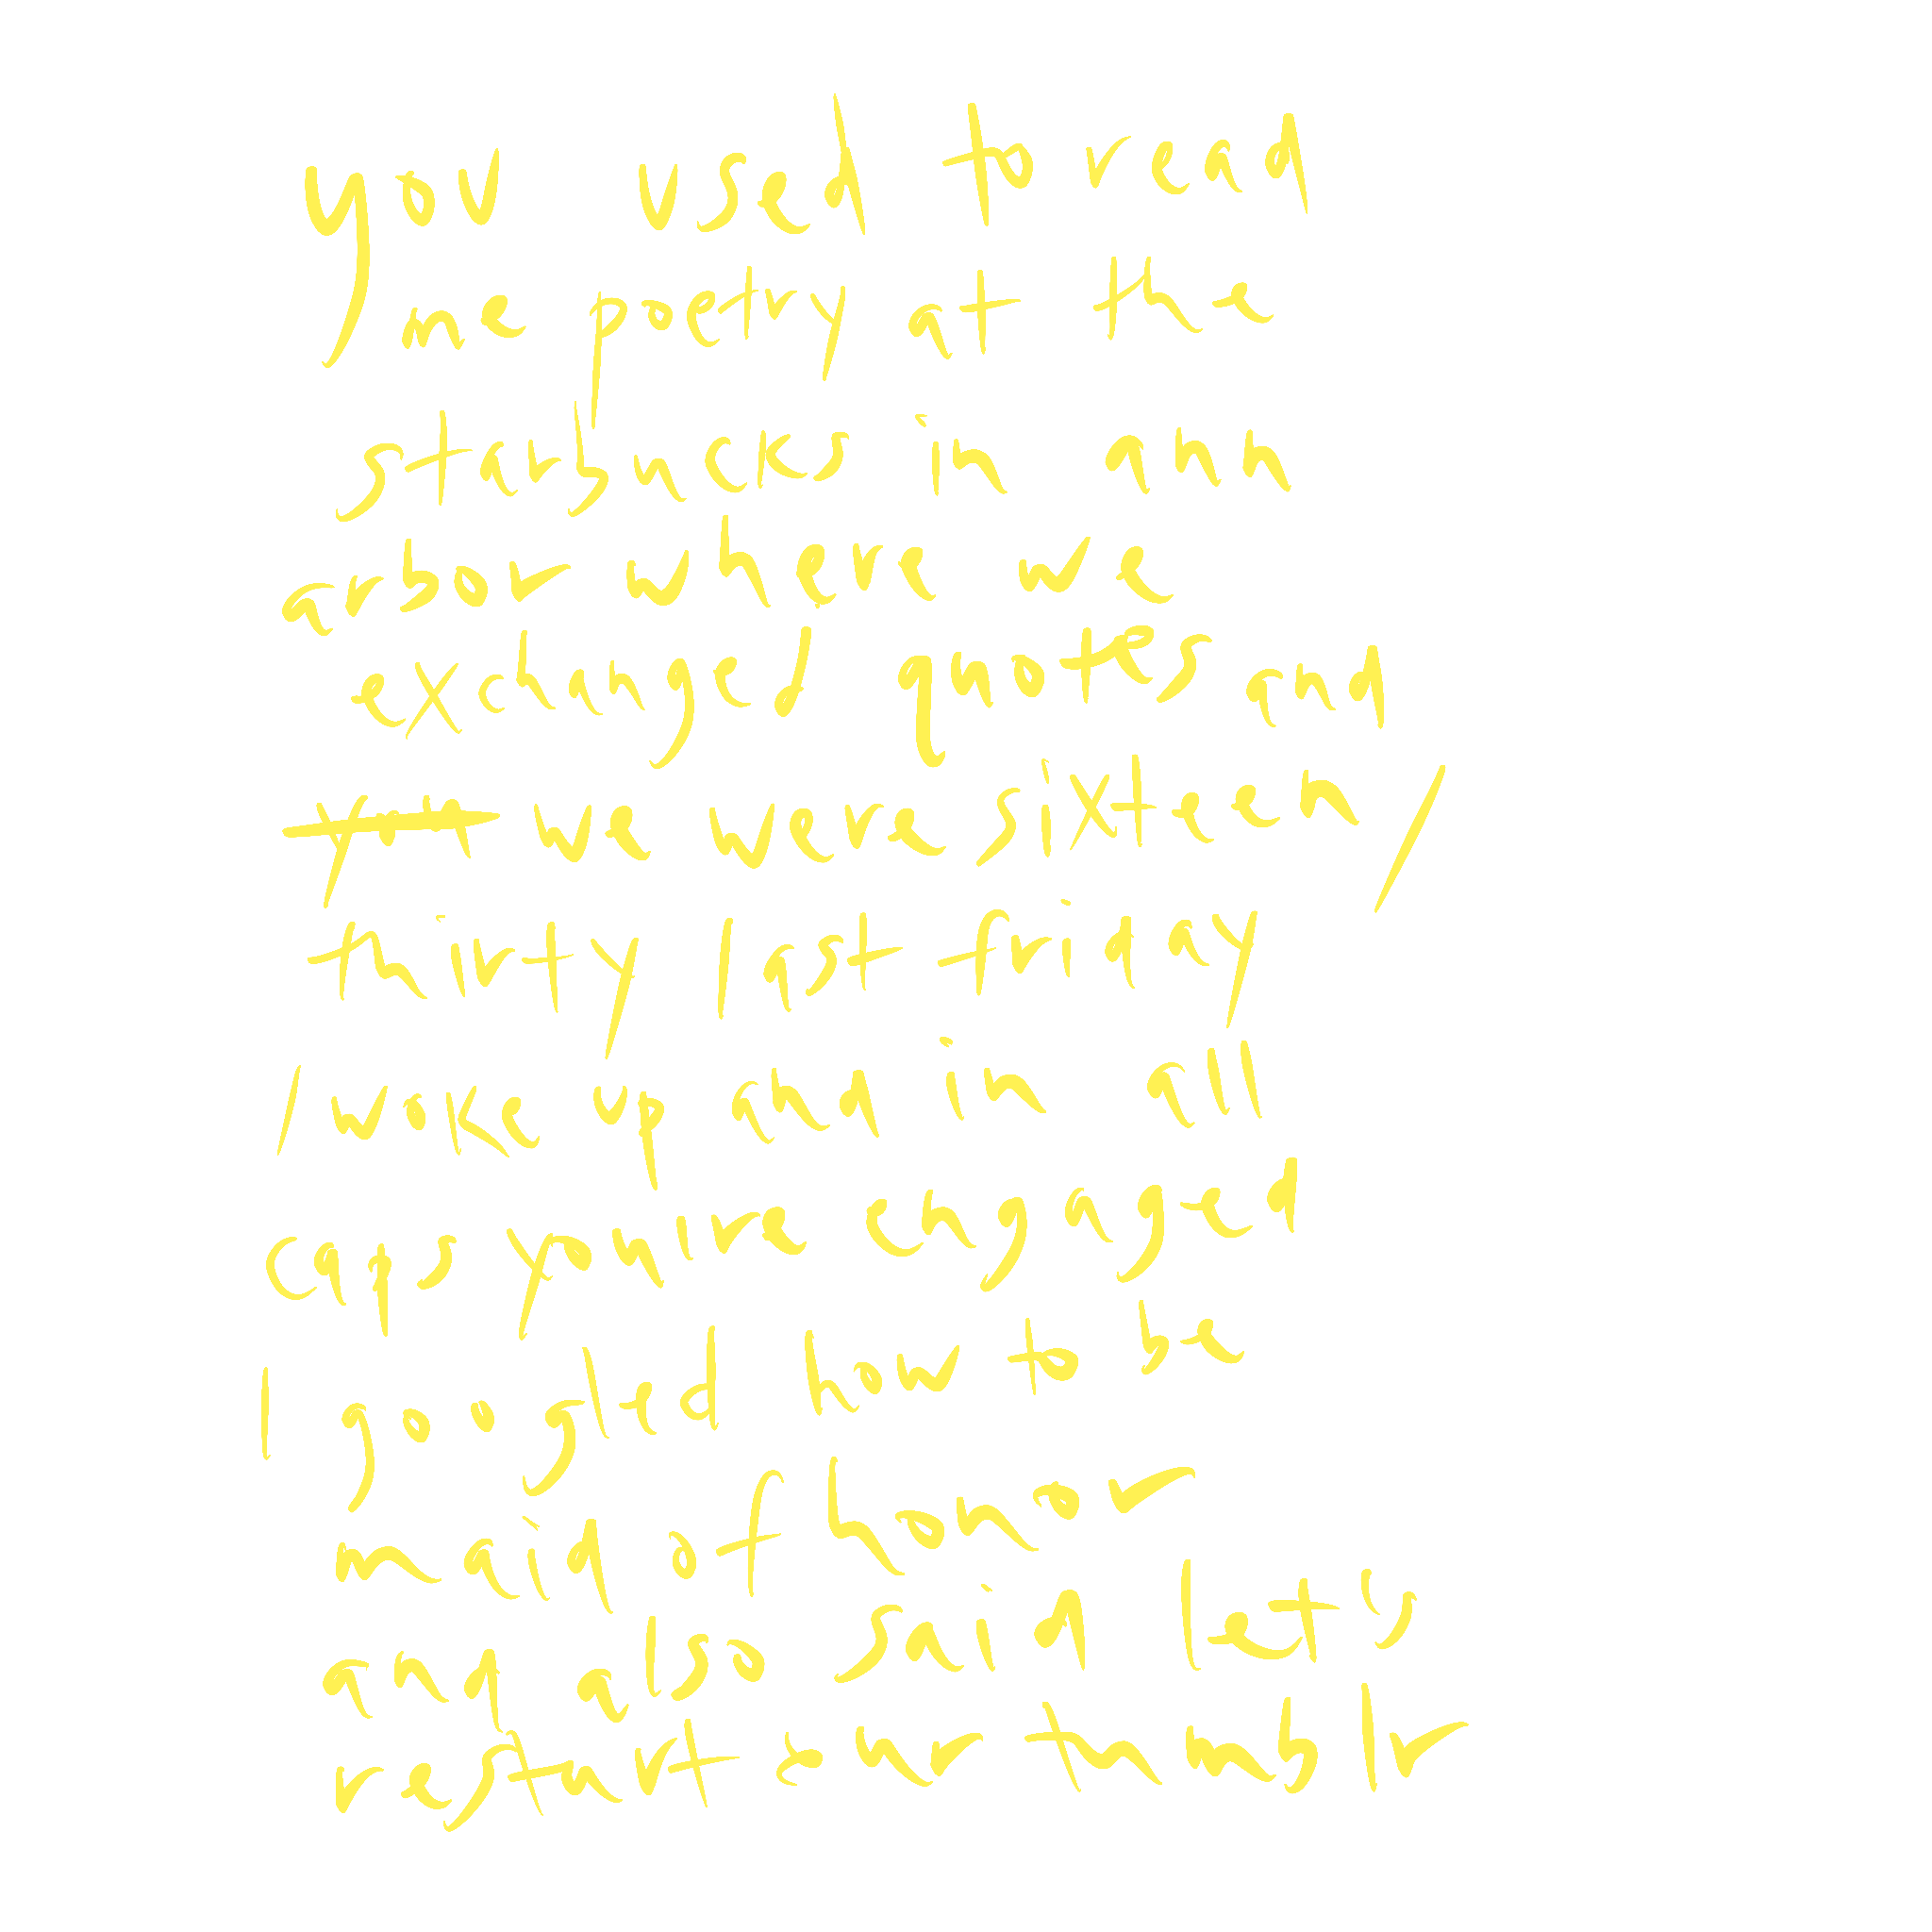 you used to read
me poetry at the
starbucks in ann
arbor where we
exchanged quotes and
we were sixteen/
thirty last friday
I woke up and in all
caps you're engaged
I googled how to be
maid of honor
and also said let's
restart our tumblr